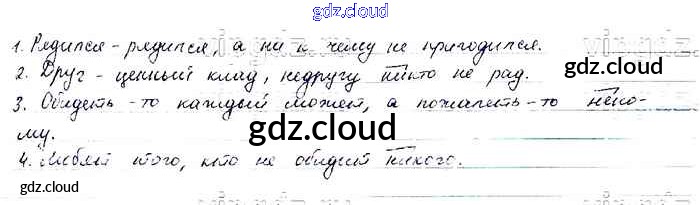 gdz.cloud
1. Рядился - рядился, а ни к чему не пригодился.
2. Друг - ценный клад, недругу никто не рад.
gdz.cloud
3. Обидеть-то каждый может, а пожалеть-то неко-
му.
gdz.cloud
4. Люблю того, кто не обидит никого.
gdz.cloud
gdz.cloud